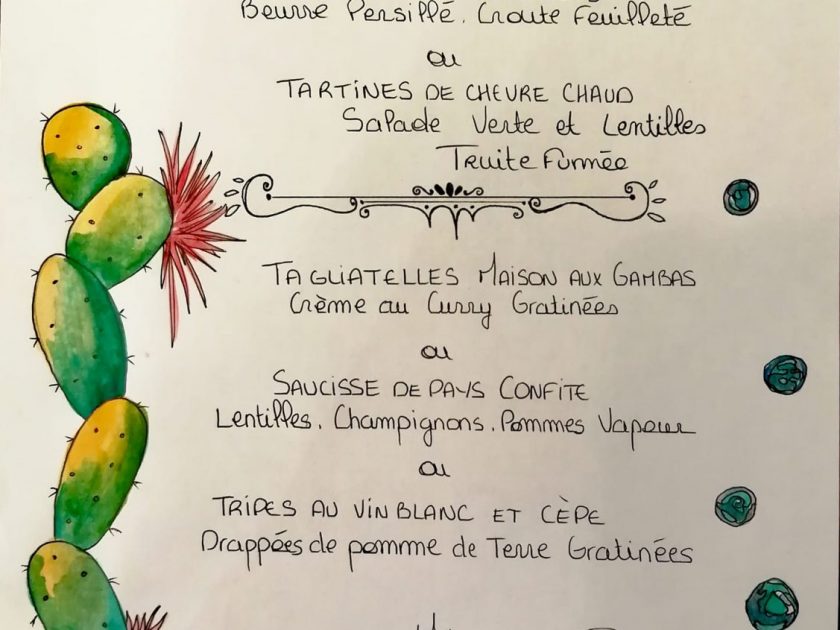 Beurre Persillé, Croute Feuilleté
ou
TARTINES DE CHEVRE CHAUD
Salade Verte et Lentilles
Truite Fumée
TAGLIATELLES MAISON AUX GAMBAS
Crème au Curry Gratinées
ou
SAUCISSE DE PAYS CONFITE
Lentilles, Champignons, Pommes Vapeur
ou
TRIPES AU VIN BLANC ET CÈPE
Drappées de pomme de Terre Gratinées